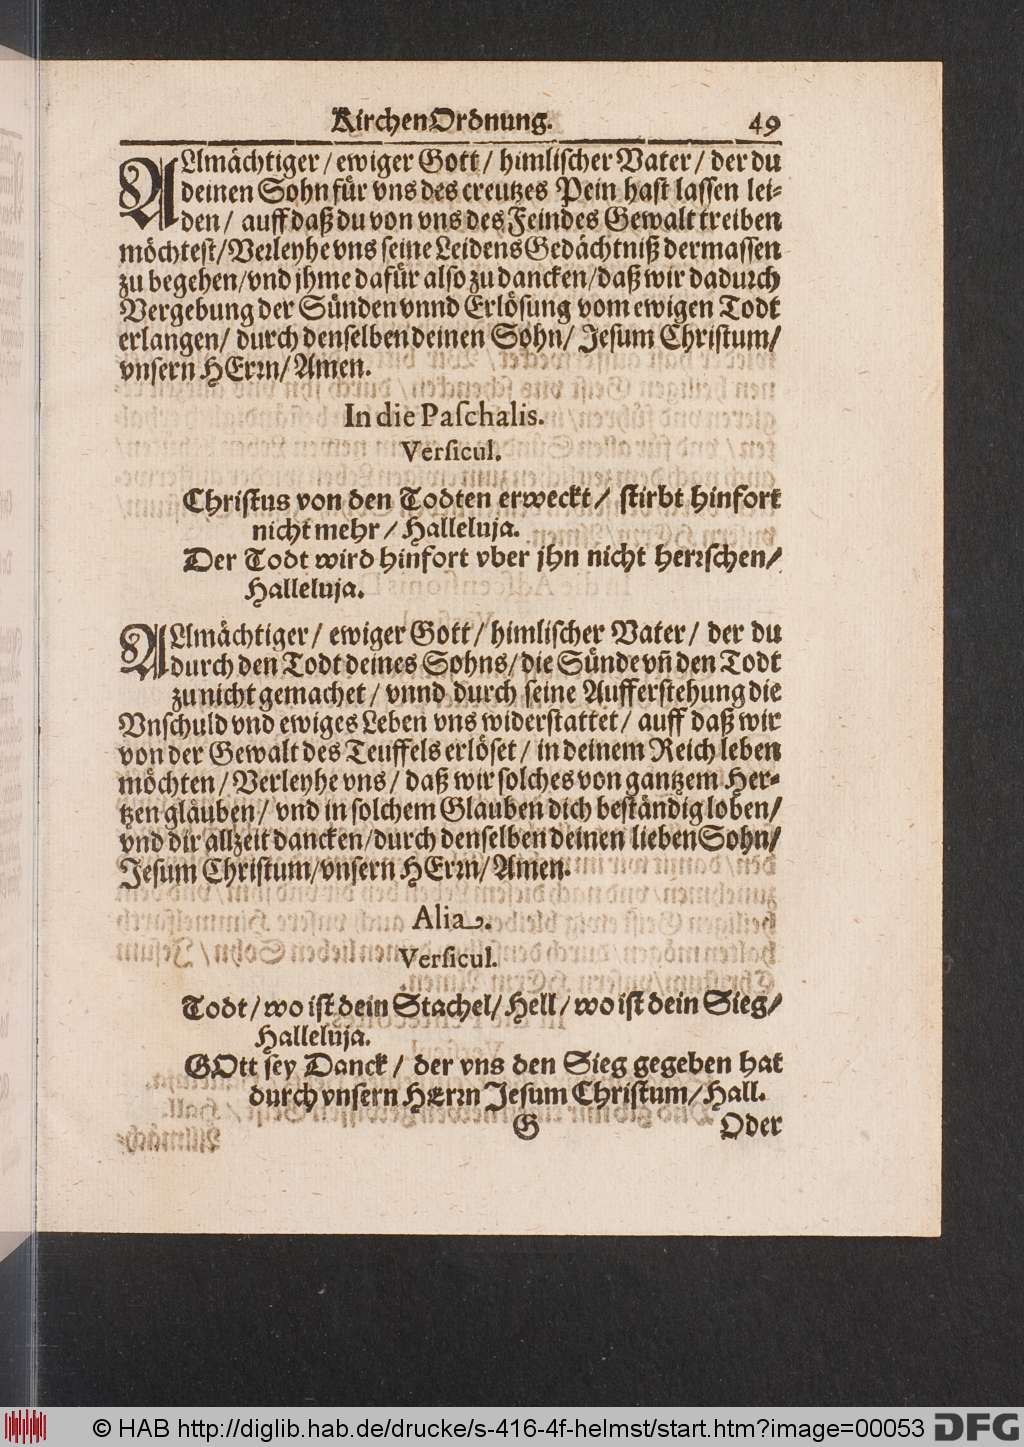 KirchenOrdnung. 49
ALlmächtiger / ewiger Gott / himlischer Vater / der du
deinen Sohn für vns des creutzes Pein hast lassen lei⸗
den / auff daß du von vns des Feindes Gewalt treiben
möchtest / Verleyhe vns seine Leidens Gedächtniß dermassen
zu begehen / vnd jhme dafür also zu dancken / daß wir dadurch
Vergebung der Sünden vnnd Erlösung vom ewigen Todt
erlangen / durch denselben deinen Sohn / Jesum Christum /
vnsern HErrn / Amen.
In die Paſchalis.
Verſicul.
Christus von den Todten erweckt / stirbt hinfort
nicht mehr / Halleluja.
Der Todt wird hinfort vber jhn nicht herrschen /
Halleluja.
ALlmächtiger / ewiger Gott / himlischer Vater / der du
durch den Todt deines Sohns / die Sünde vñ den Todt
zu nicht gemachet / vnnd durch seine Aufferstehung die
Vnschuld vnd ewiges Leben vns widerstattet / auff daß wir
von der Gewalt des Teuffels erlöset / in deinem Reich leben
möchten / Verleyhe vns / daß wir solches von gantzem Her⸗
tzen gläuben / vnd in solchem Glauben dich beständig loben /
vnd dir allzeit dancken / durch denselben deinen lieben Sohn /
Jesum Christum / vnsern HErrn / Amen.
Alia.
Verſicul.
Todt / wo ist dein Stachel / Hell / wo ist dein Sieg /
Halleluja.
GOtt sey Danck / der vns den Sieg gegeben hat
durch vnsern HErrn Jesum Christum / Hall.
G Oder
© HAB http://diglib.hab.de/drucke/s-416-4f-helmst/start.htm?image=00053 DFG